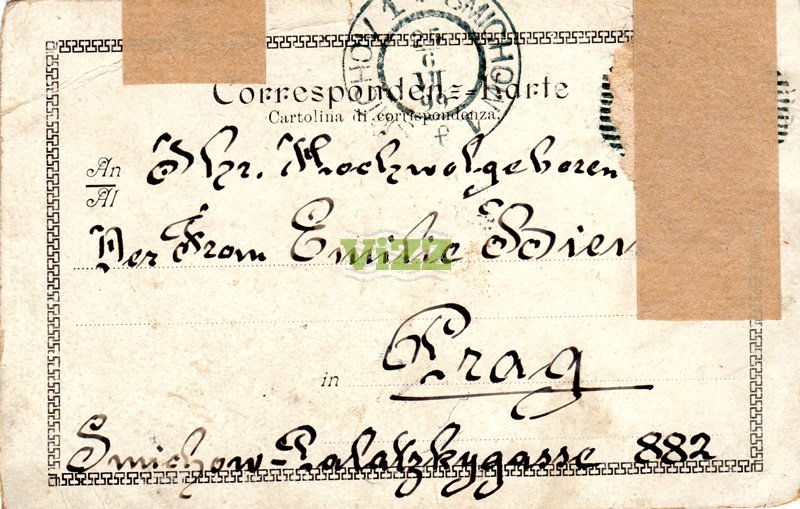 SMICHOV 1
6
VII
99
Correspondenz-Karte
Cartolina di corrispondenza.
An Ihr. Hochwolgeboren
Al
Der From Emilie Bien
ViZZ
in Prag
Smichow-Palatzkygasse 882